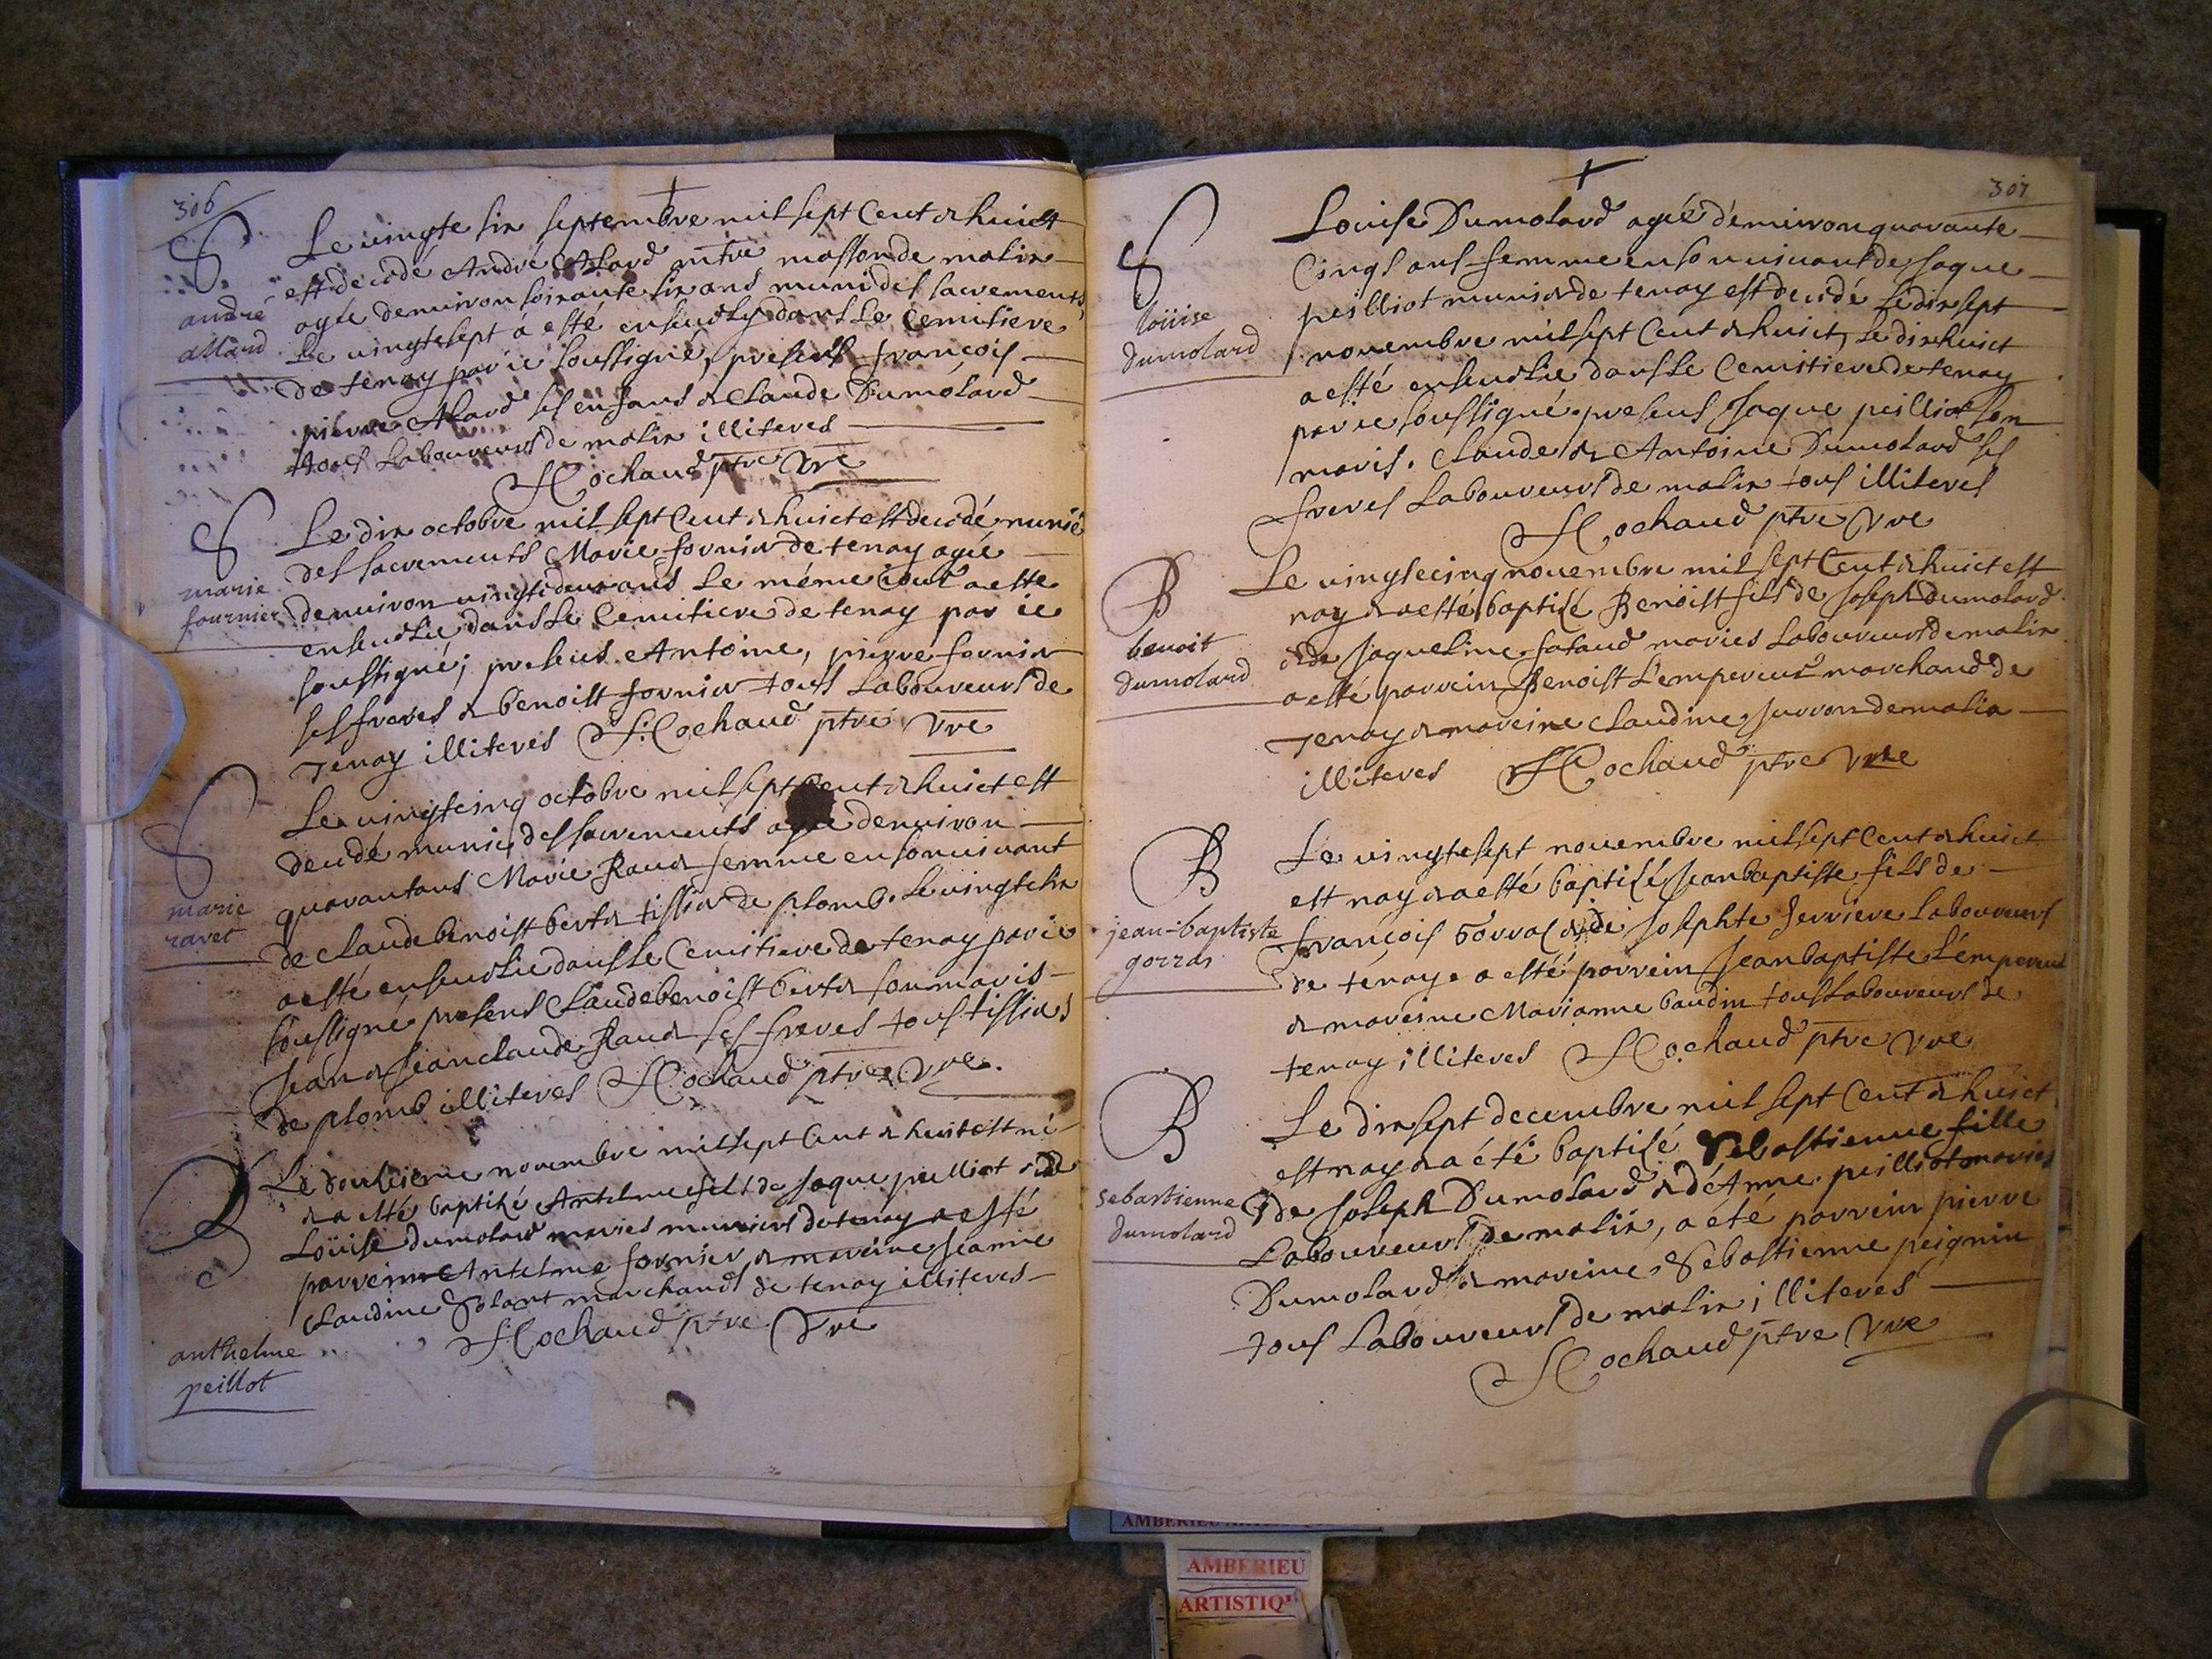 306
Le vingte six septembre mil sept Cent & huict
est decedé André Alard mtre masson de malix
agée denviron soixante six ans muni des sacrements
Le vingtesept a esté ensevely dans Le Cemitiere
de tenay par ie soussigné, presents françois
pierre Alard ses enfans & Claude Dumolard
tous Laboureurs de malix illiteres
Cochaud ptre vre
andré
allard
Le dix octobre mil sept Cent & huict est decedé munie
des sacrements Marie fornier de tenay agée
denviron vingtdeux ans Le même iour a esté
ensevelie dans Le Cemitiere de tenay par ie
soussigné; presens Antoine, pierre fornier
ses freres & benoist fornier tous Laboureurs de
Tenay illiteres Cochaud ptre vre
marie
fournier
Le vingtcinq octobre mil sept Cent & huict est
decedé munie des sacrements agée denviron
quarantans Marie Ravet femme en son vivant
de Claude benoist bertet tissier de plomb. Le vingtesix
a esté ensevelie dans Le Cemitiere de tenay par ie
soussigné presens Claude benoist bertet son maris
Jean & Jean claude Ravet ses freres tous tissiers
de plomb illiteres Cochaud ptre vre.
marie
ravet
B
Le novembre mil sept Cent & huict est né
& a esté baptizé Antelme fils de Jaque peilliot & de
Loüise dumolard mariés muniers de tenay a esté
parrein Antelme fornier & mareine Jeanne
Claudine Jolant marchands de tenay illiteres
Cochaud ptre vre
anthelme
peillot
307
Louise Dumolard agée d'environ quarante
Cinqs ans femme en son vivant de Jaque
peilliot munier de tenay est decedé Le dix sept
novembre mil sept Cent & huict, Le dix huict
a esté ensevelie dans Le Cemitiere de tenay
par ie soussigné. presens Jaque peilliot son
maris. Claude & Antoine Dumolard ses
freres Laboureurs de malix tous illiteres
Cochaud ptre vre
loüise
dumolard
B
Le vingtecinq novembre mil sept Cent & huict est
nay & a esté baptisé Benoist fils de Joseph dumolard
& de Jaqueline mariés Laboureurs de malix
a esté parrein Benoist L'empereur marchand de
Tenay & mareine Claudine Juvron de malix
illiteres Cochaud ptre vre
benoit
dumolard
B
Le vingtesept novembre mil sept Cent & huict
est nay & a esté baptisé Jean baptiste fils de
françois Gorras & de Josephte ferriere Laboureurs
de tenay. a esté parrein Jean baptiste L'empereur
& mareine Marianne baudin tous Laboureurs de
tenay illiteres Cochaud ptre vre
jean-baptiste
gorras
B
Le dix sept decembre mil sept Cent & huict
est nay & a été baptisé Sebastienne fille
de Joseph Dumolard & d'Anne peilliot mariés
Laboureurs de malix, a été parrein pierre
Dumolard & mareine Sebastienne peignin
tous Laboureurs de malix illiteres
Cochaud ptre vre
sebastienne
dumolard
AMBERIEU
ARTISTIQ